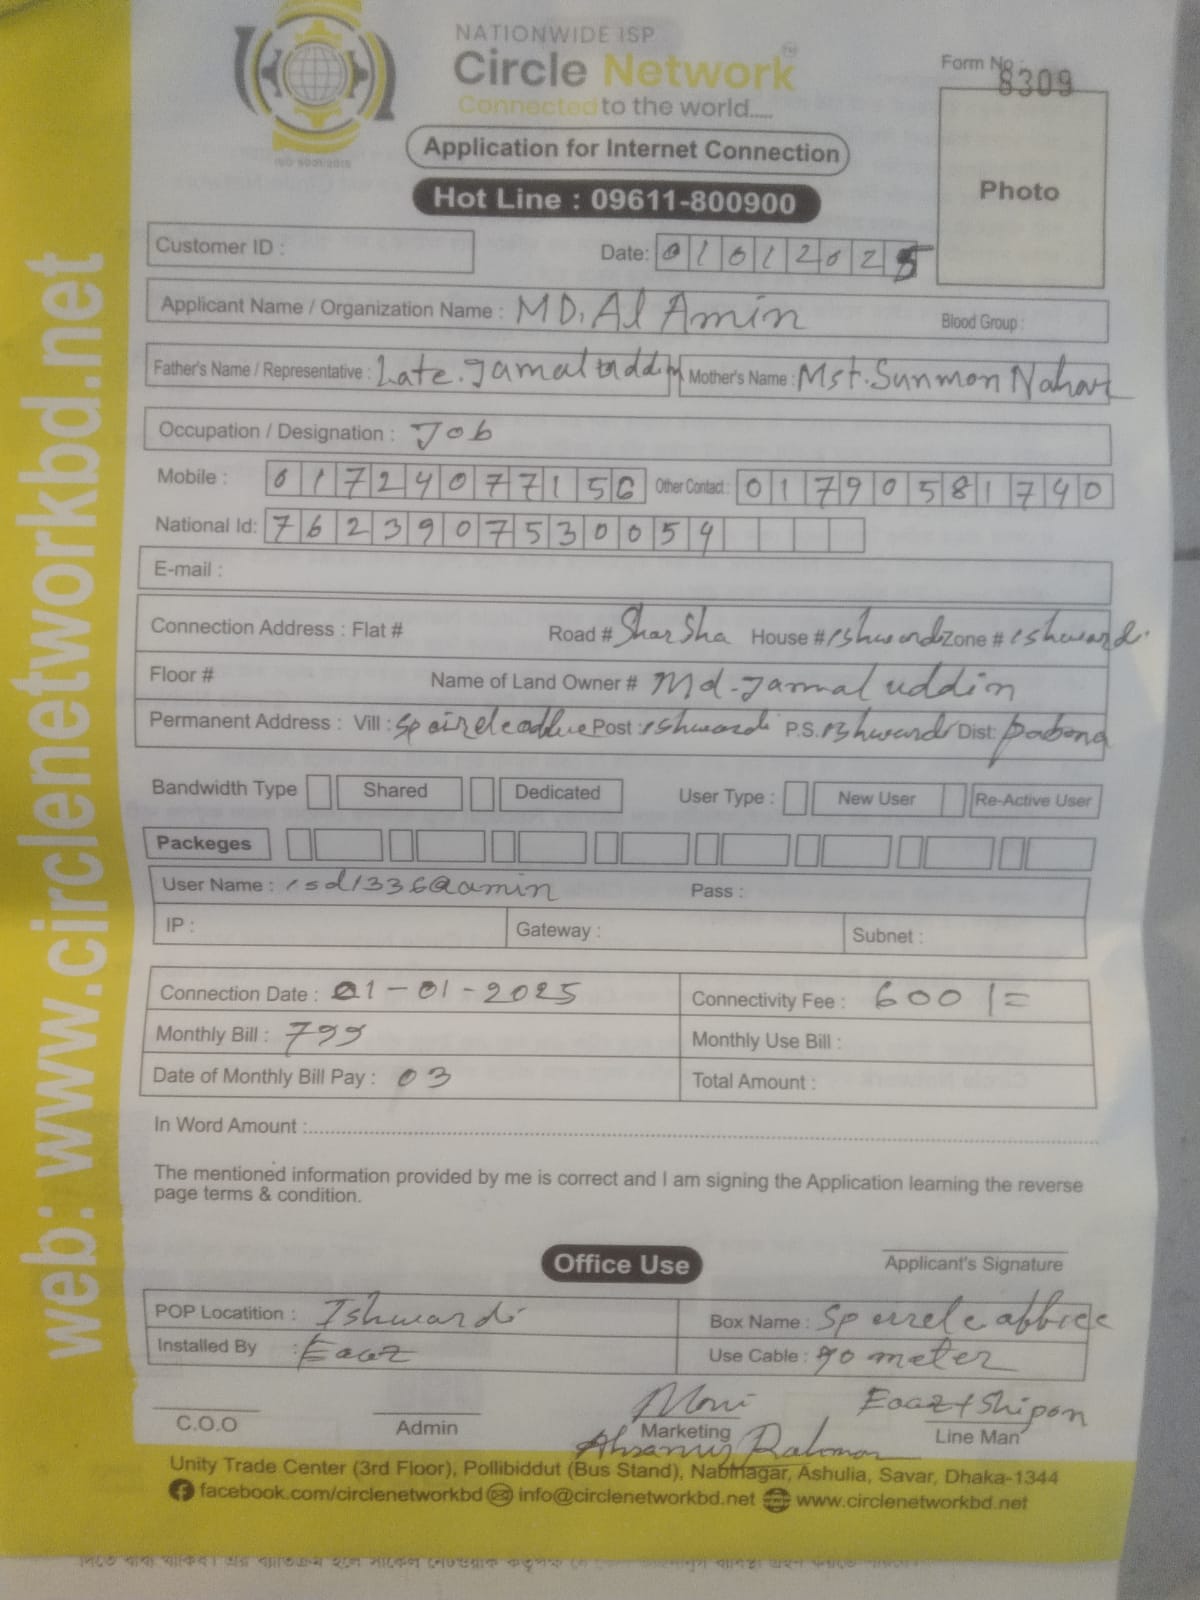 NATIONWIDE ISP
Circle Network TM
Connected to the world.....
ISO 9001:2015
Form No : 8309
Application for Internet Connection
Photo
Hot Line : 09611-800900
Customer ID :
Date: 01012025
Applicant Name / Organization Name : MD. Al Amin Blood Group :
Father's Name / Representative : Late. Jamal uddin Mother's Name : Mst. Sunmon Nahar
Occupation / Designation : Job
Mobile : 01724077156 Other Contact : 01790581740
National Id: 7623907530054
E-mail :
Connection Address : Flat # Road # SharSha House # ishwardi Zone # ishwardi
Floor # Name of Land Owner # Md. Jammal uddin
Permanent Address : Vill : Post : ishwardi P.S. ishwardi Dist: pabona
Bandwidth Type Shared Dedicated User Type : New User Re-Active User
Packeges
User Name : isd1336@amin Pass :
IP : Gateway : Subnet :
Connection Date : 01-01-2025 Connectivity Fee : 600/=
Monthly Bill : 799 Monthly Use Bill :
Date of Monthly Bill Pay : 03 Total Amount :
In Word Amount :
The mentioned information provided by me is correct and I am signing the Application learning the reverse
page terms & condition.
Office Use
Applicant's Signature
POP Locatition : Ishwardi Box Name :
Installed By : Eaaz Use Cable : 90 meter
Moni Eaaz + Shipon
C.O.O Admin Marketing Line Man
Rahman
Unity Trade Center (3rd Floor), Pollibiddut (Bus Stand), Nabinagar, Ashulia, Savar, Dhaka-1344
facebook.com/circlenetworkbd info@circlenetworkbd.net www.circlenetworkbd.net
web: www.circlenetworkbd.net